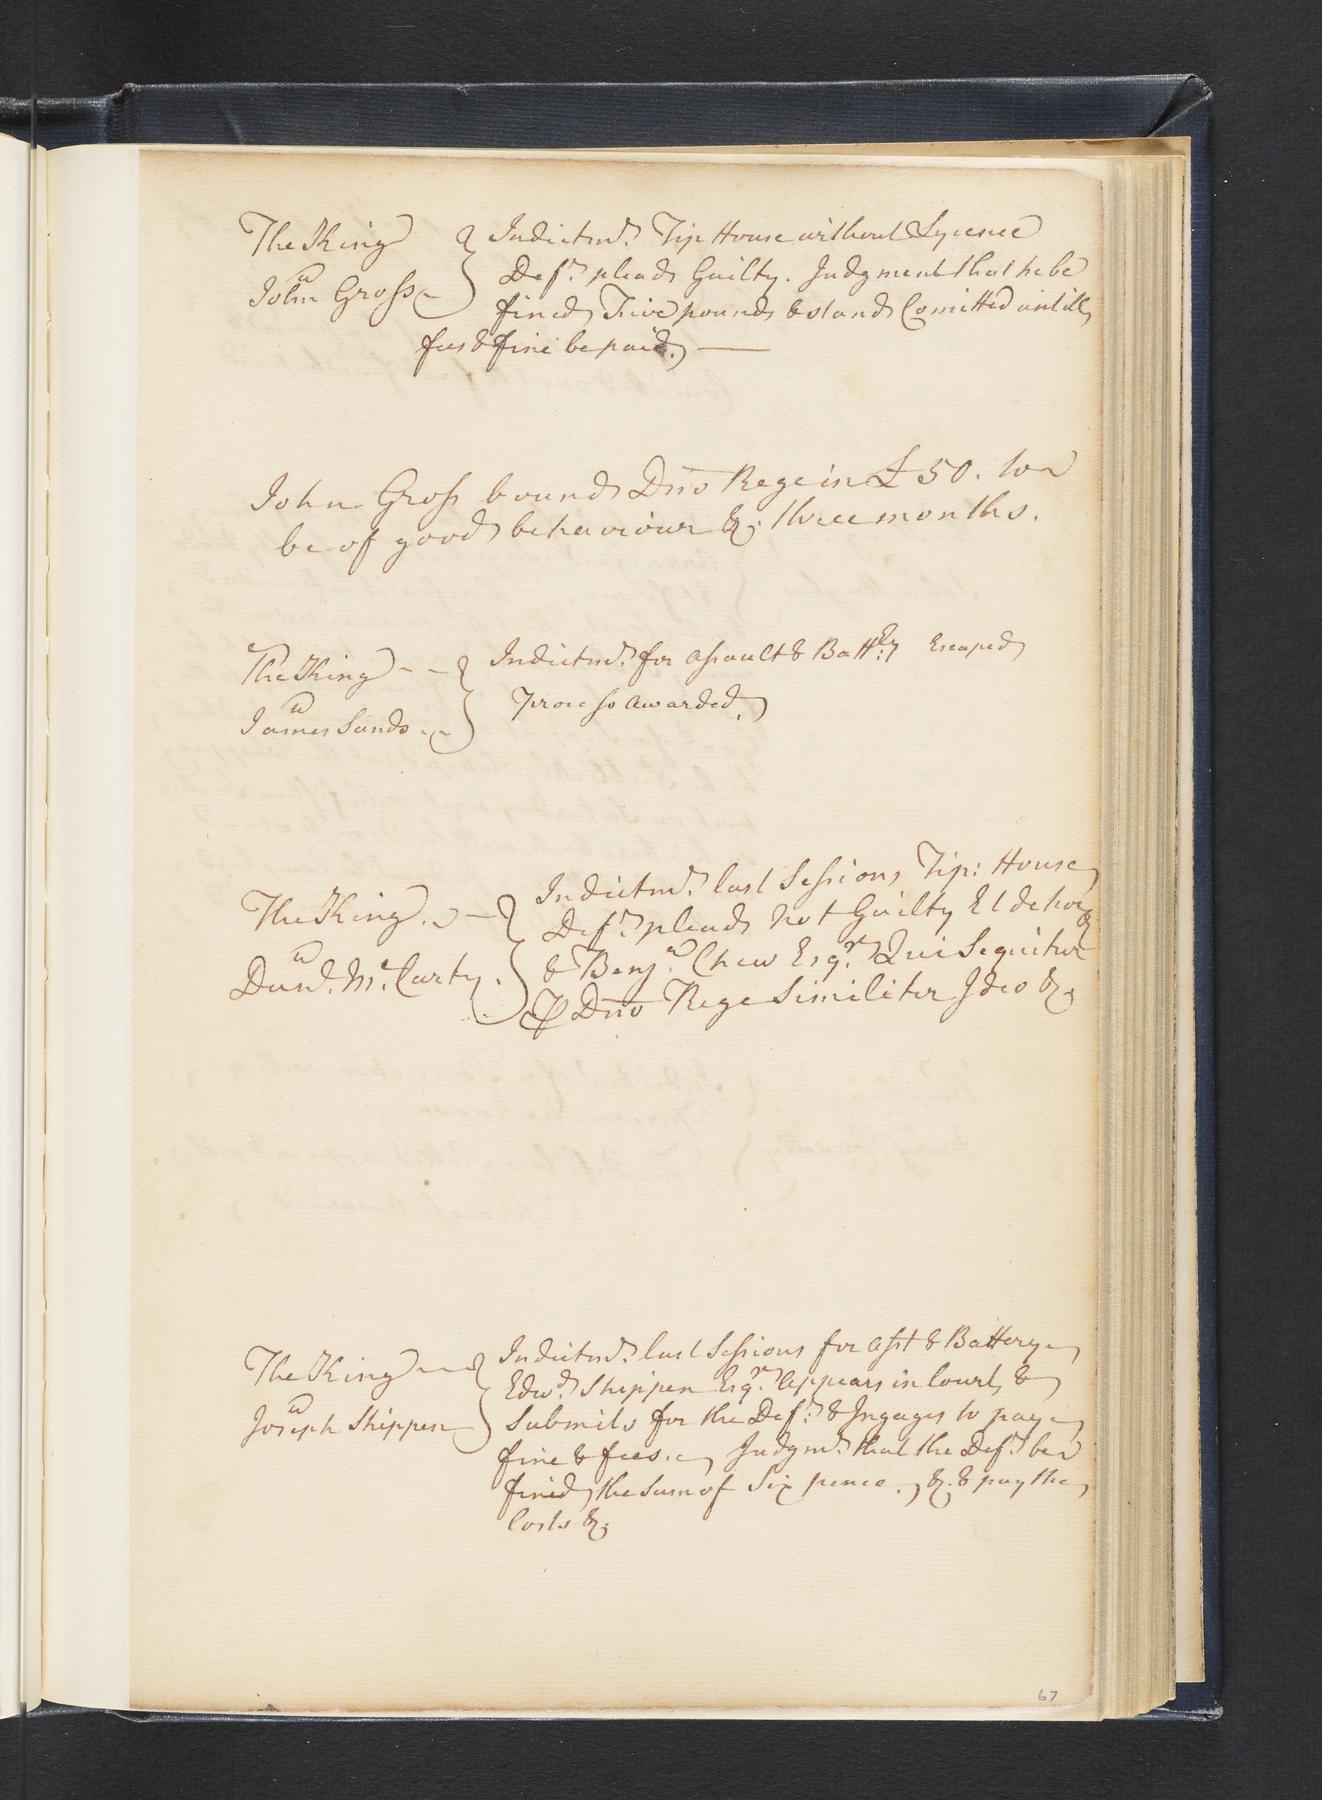 The King } Indictmt. Tip House without Lycence
v
John Gross } Deft. pleads Guilty. Judgment that he be
fined Five pounds & stands Comitted untill
fees & fine be paid.
John Gross bound Dno Rege in £50. to
be of good behaviour &c. three months.
The King } Indictmt. for assault & Battery Escaped
v
James Sands } Process awarded.
The King } Indictmt. last Sessions Tip: House
v
Danl. McCarty } Deft. pleads not Guilty Et de hoc &c
& Benjn. Chew Esqr. Qui Sequitur
P Dno Rege Similiter Ideo &c.
The King } Indictmt. last Sessions for asst & Battery
v
Joseph Shippen } Edwd. Shippen Esqr. appears in Court, &
Submits for the Deft. & Ingages to pay
fine & fees. Judgmt. that the Deft. be
fined the sum of Six pence. &c. & pay the
Costs &c.
67